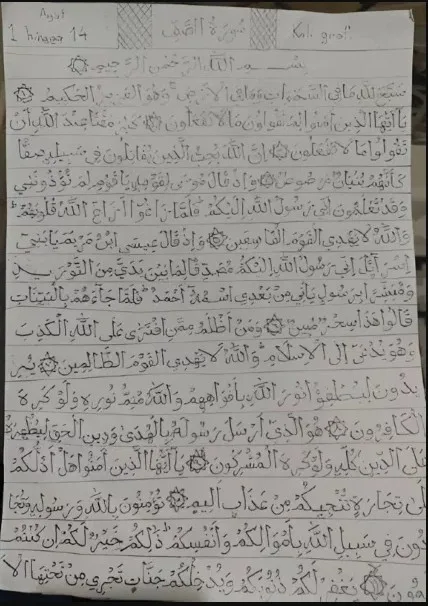 Ayat
1 hingga 14
سورة الصف
Kali grafi
بسم الله الرحمن الرحيم
سبح لله ما في السماوات وما في الأرض وهو العزيز الحكيم
يا أيها الذين آمنوا لم تقولون ما لا تفعلون كبر مقتا عند الله أن
تقولوا ما لا تفعلون إن الله يحب الذين يقاتلون في سبيله صفا
كأنهم بنيان مرصوص وإذ قال موسى لقومه يا قوم لم تؤذونني
وقد تعلمون أني رسول الله إليكم فلما زاغوا أزاغ الله قلوبهم
والله لا يهدي القوم الفاسقين وإذ قال عيسى ابن مريم يا بني
إسرائيل إني رسول الله إليكم مصدقا لما بين يدي من التورية
ومبشرا برسول يأتي من بعدي اسمه أحمد فلما جاءهم بالبينات
قالوا هذا سحر مبين ومن أظلم ممن افترى على الله الكذب
وهو يدعى إلى الإسلام والله لا يهدي القوم الظالمين يريـ
يدون ليطفئوا نور الله بأفواههم والله متم نوره ولو كره
الكافرون هو الذي أرسل رسوله بالهدى ودين الحق ليظهره
على الدين كله ولو كره المشركون يا أيها الذين آمنوا هل أدلكم
على تجارة تنجيكم من عذاب أليم تؤمنون بالله ورسوله وتجا
دون في سبيل الله بأموالكم وأنفسكم ذلكم خير لكم إن كنتم
يغفر لكم ذنوبكم ويدخلكم جنات تجري من تحتها الأ